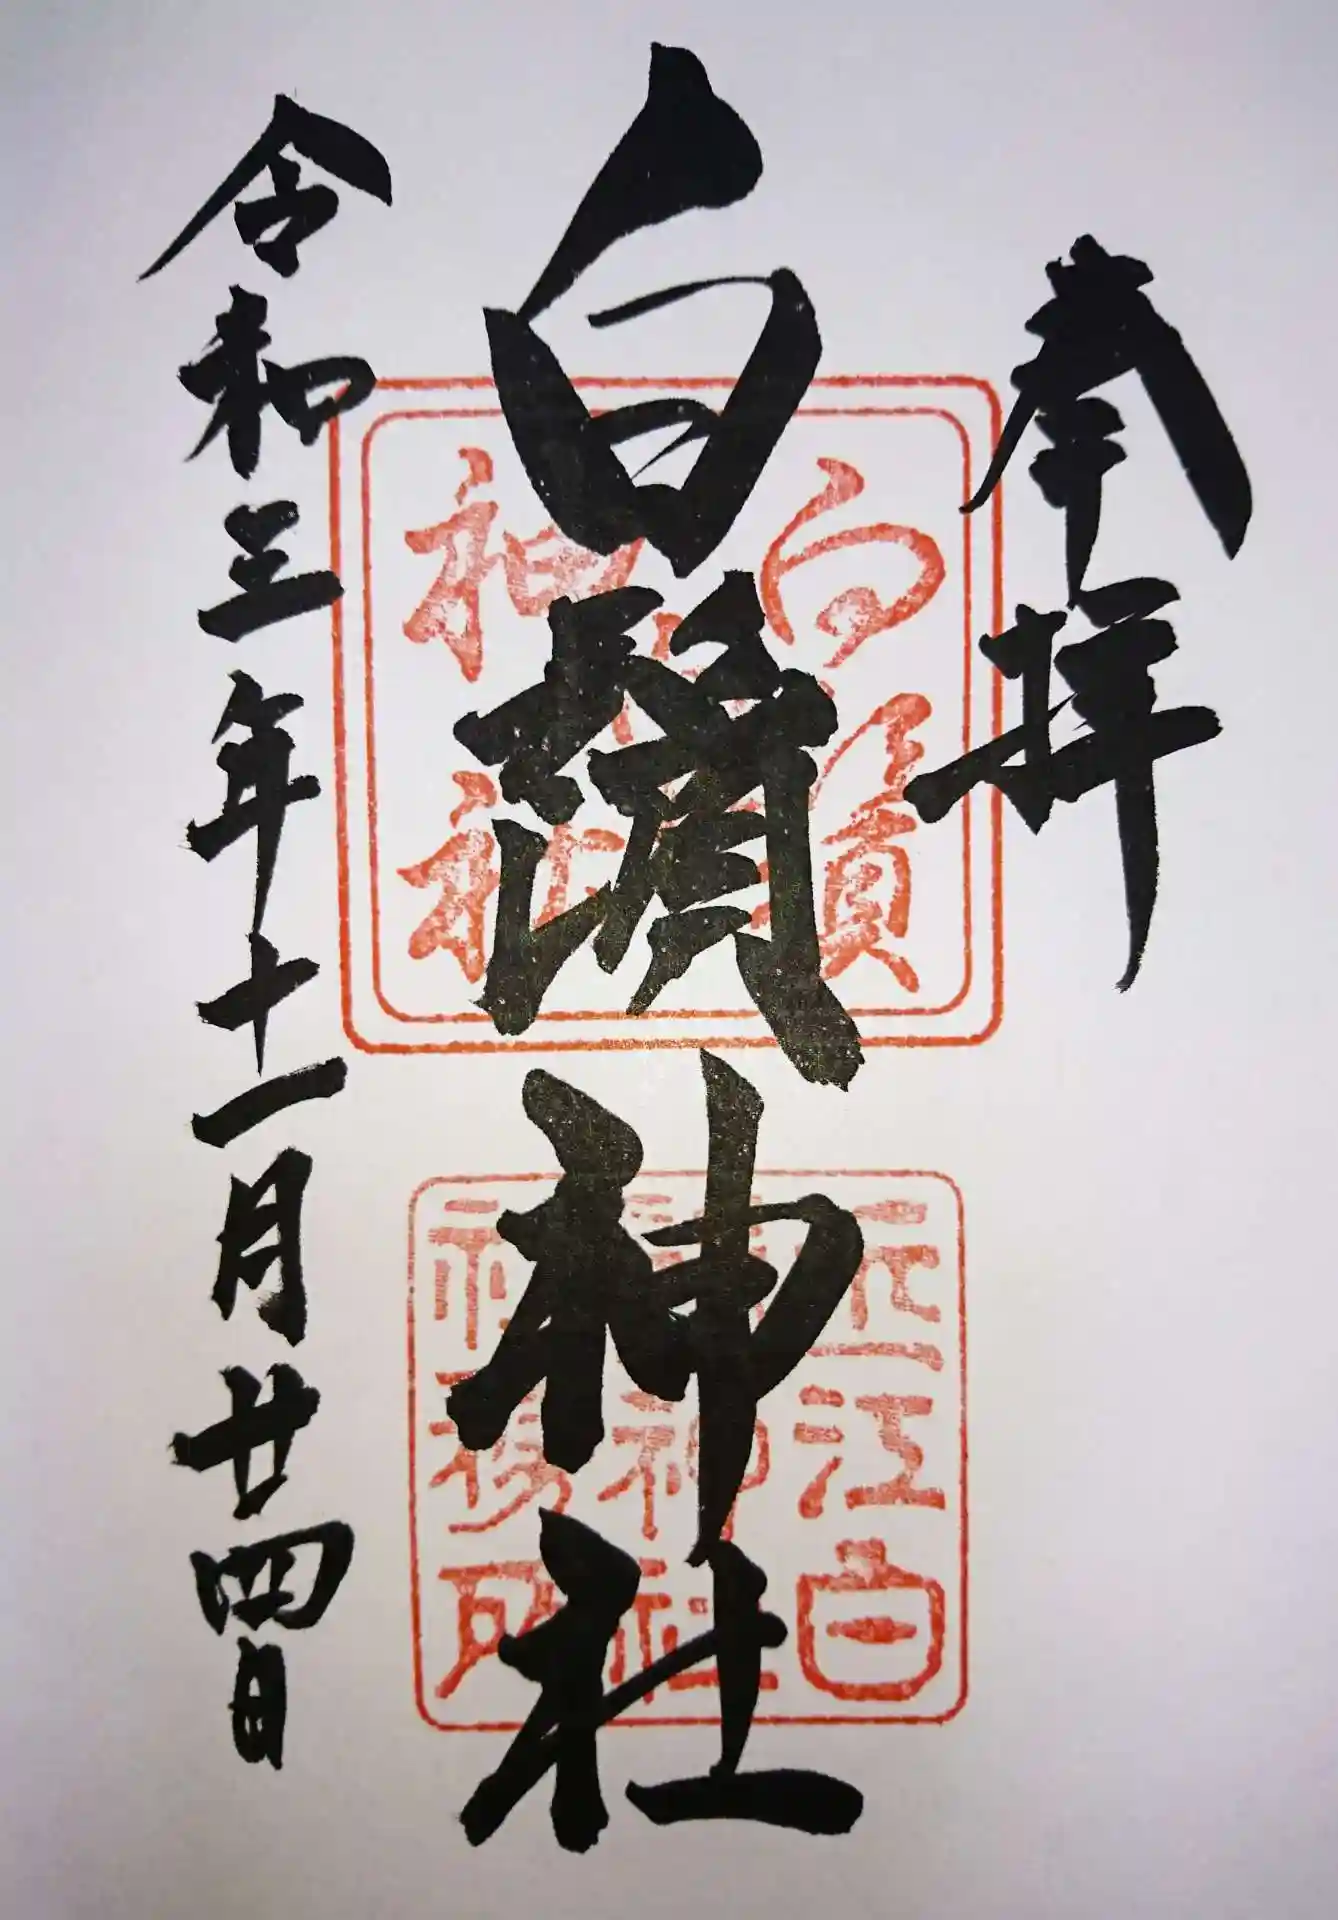 奉拝
白鬚神社
令和三年十一月廿四日
白鬚
神社
近江白
鬚神社
社務所